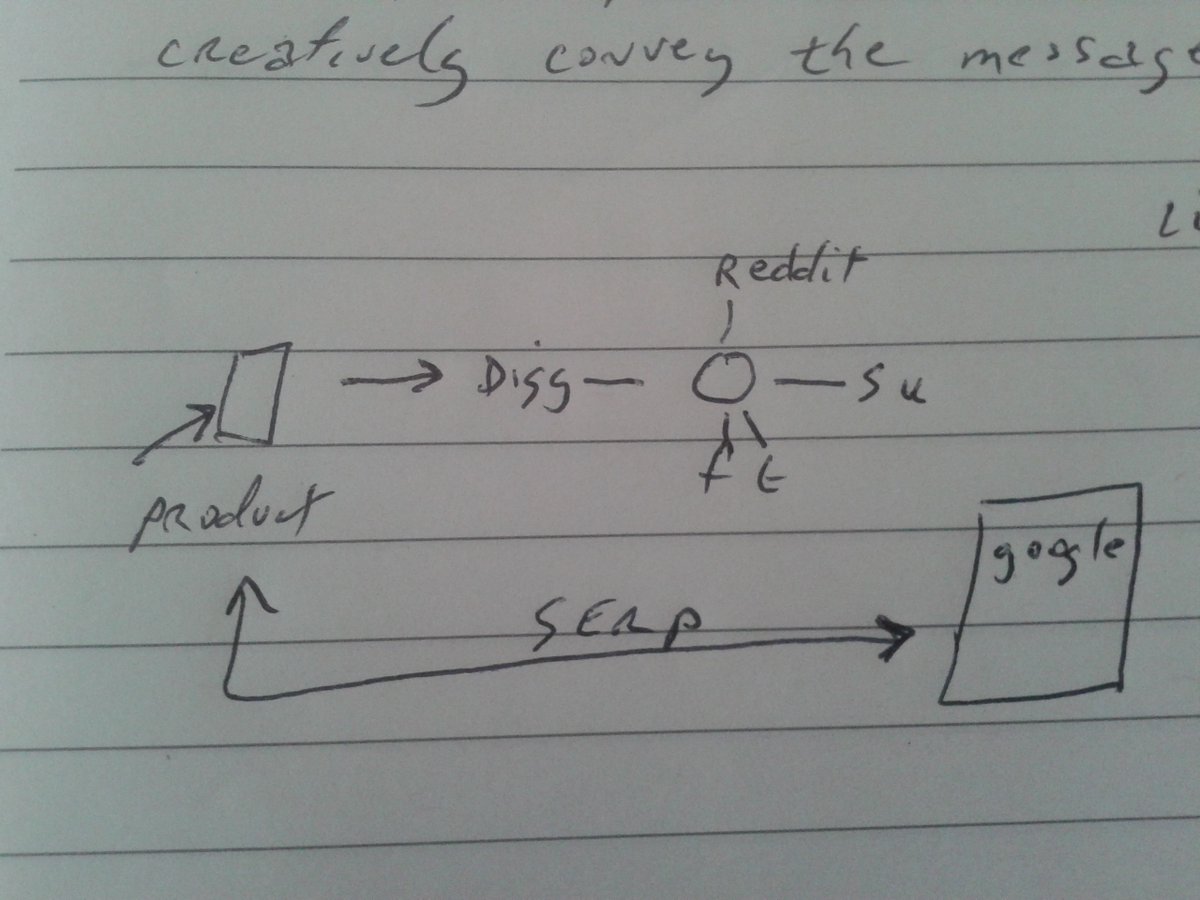 creatively convey the message
Li
Reddit
Digg
Su
f t
product
google
SERP